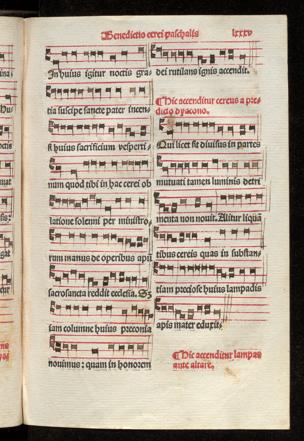 Benedictio cerei paschalis
lxxxv
In huius igitur noctis gra
tia suscipe sancte pater incen
si huius sacrificium vesperti
num quod tibi in hac cerei ob
latione solemni per ministro
rum manus de operibus apũ
sacrosancta reddit ecclesia. Sz
iam columne huius preconia
nouimus: quam in honorem
dei rutilans ignis accendit.
¶ Hic accenditur cereus a pre
dicto dyacono.
Qui licet sit diuisus in partes
mutuati tamen luminis detri
menta non nouit. Alitur liquã
tibus cereis quas in substan
tiam preciose huius lampadis
apis mater eduxit.
¶ Hic accenditur lampas
ante altare.